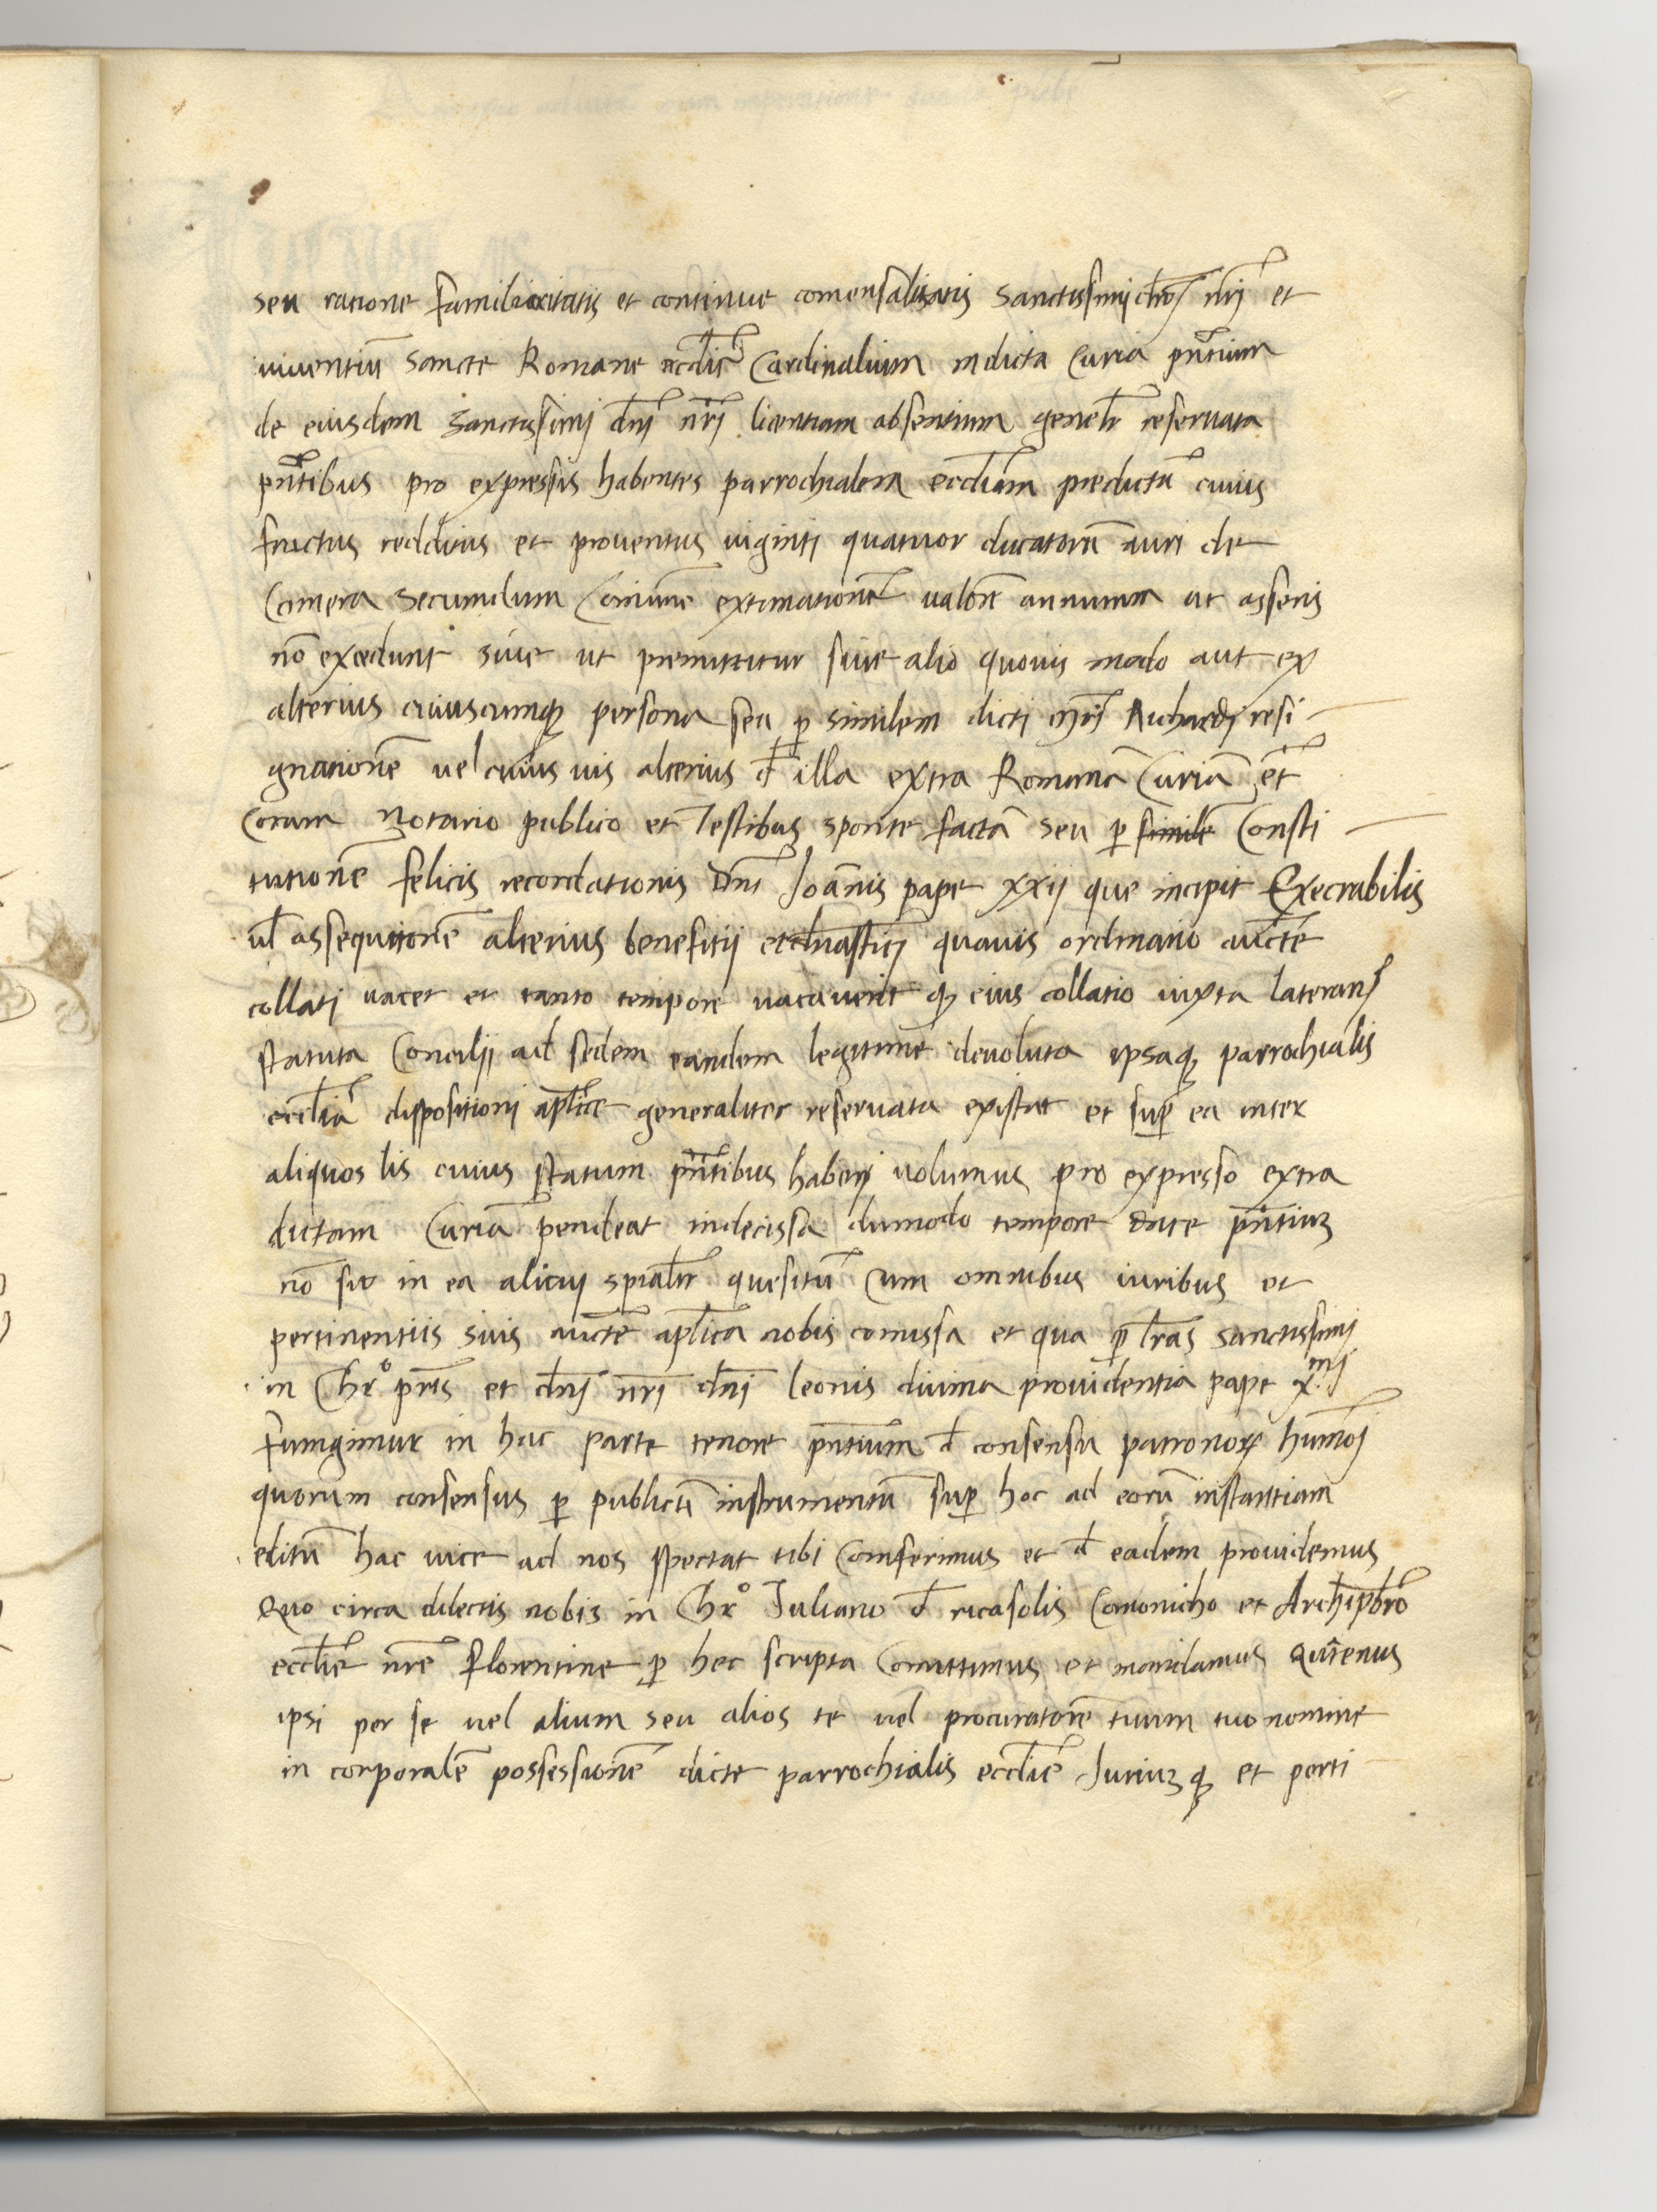 seu ratione familiaritatis et continue comensalitatis Sanctissimi dñi nr̃i et
viventiũ Sancte Romane eccliẽ Cardinalium in dicta Curia pñtium
de eiusdem Sanctissimi dñj nr̃j licentiam absentium gener̃lr reservata
pñtibus pro expressis habentes parrochialem eccliam predictã cuius
fructus redditus et proventus viginti quatuor ducatorũ auri de
Camera Secundum Comunẽ extimationẽ valorẽ annuum ut asseris
nõ excedunt sive ut premittitur sive alio quovis modo aut ex
alterius cuiuscumqȝ persona seu ꝑ similem dicti Mr̃i Richardj resi
gnationẽ vel cuius vis alterius đ illa extra Romanã Curiã et̃
Coram Notario publico et Testibus sponte factã seu ꝑ similẽ Consti
tutionẽ felicis recordationis Dñi Joãnis pape xxij que incipit Execrabilis
vl̃ assequtionẽ alterius benefitij ecclesiasticj quavis ordinario auctẽ
collati vacet et tanto tempore vacaverit qȝ eius collatio iuxta lateranj̃
statuta Concilij ad sedem eandem legitime devoluta ipsaqȝ parrochialis
eccliã dispositionj aplice generaliter reservata existat et suꝑ ea inter
aliquos lis cuius statum pñtibus haberj volumus pro expresso extra
dictam Curiã pendeat indecissa dumodo tempore date pñtiuȝ
nõ sit in ea alicuj spialr̃ quesitũ Cum omnibus iuribus et
pertinentiis suis auctẽ aplica nobis comissa et qua ꝑ lr̃as Sanctissimj
in Chrº pr̃is et dñj nr̃j dñj leonis divina providentia pape x.mj
fumgimur in hac parte tenore pñtium đ consensu patronoꝝ humõj
quorum consensus ꝑ publicũ instrumentũ suꝑ hoc ad eorũ instantiam
editũ hac vice ad nos spectat tibi Comferimus et đ eadem providemus
Quo circa dilectis nobis in Chrº Juliano đ ricasolis Canonicho et Archip̃br̃o
eccliẽ nr̃e florentine ꝑ hec scripta Comittimus et mandamus Quãtenus
ipsi per se vel alium seu alios te vel procuratorẽ tuum tuo nomine
in corporalẽ possessionẽ dicte parrochialis eccliẽ Juriuȝ qȝ et perti